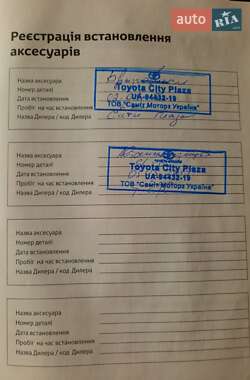 auto RIA.com
Реєстрація встановлення
аксесуарів
Назва аксесуара
Номер деталі
Дата встановлення
Пробіг на час встановлення
Назва Дилера / код Дилера
Toyota City Plaza
UA-94432-19
ТОВ "Саміт Моторз Україна"
Назва аксесуара
Номер деталі
Дата встановлення
Пробіг на час встановлення
Назва Дилера / код Дилера
Toyota City Plaza
UA-94432-19
ТОВ "Саміт Моторз Україна"
Назва аксесуара
Номер деталі
Дата встановлення
Пробіг на час встановлення
Назва Дилера / код Дилера
Назва аксесуара
Номер деталі
Дата встановлення
Пробіг на час встановлення
Назва Дилера / код Дилера